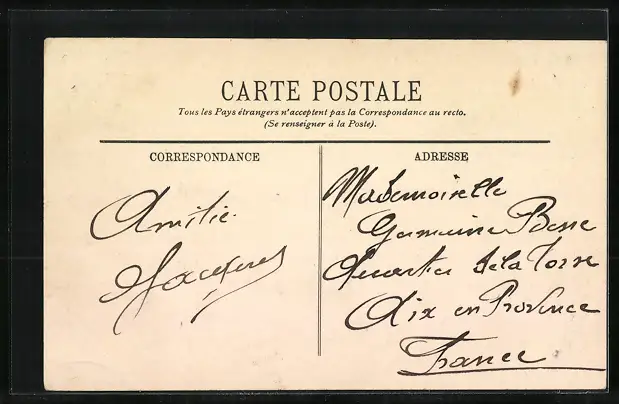 CARTE POSTALE
Tous les Pays étrangers n'acceptent pas la Correspondance au recto.
(Se renseigner à la Poste).
CORRESPONDANCE
Amitié
Jacques
ADRESSE
Mademoiselle
Germaine Besse
Quartier de la Torse
Aix en Provence
France